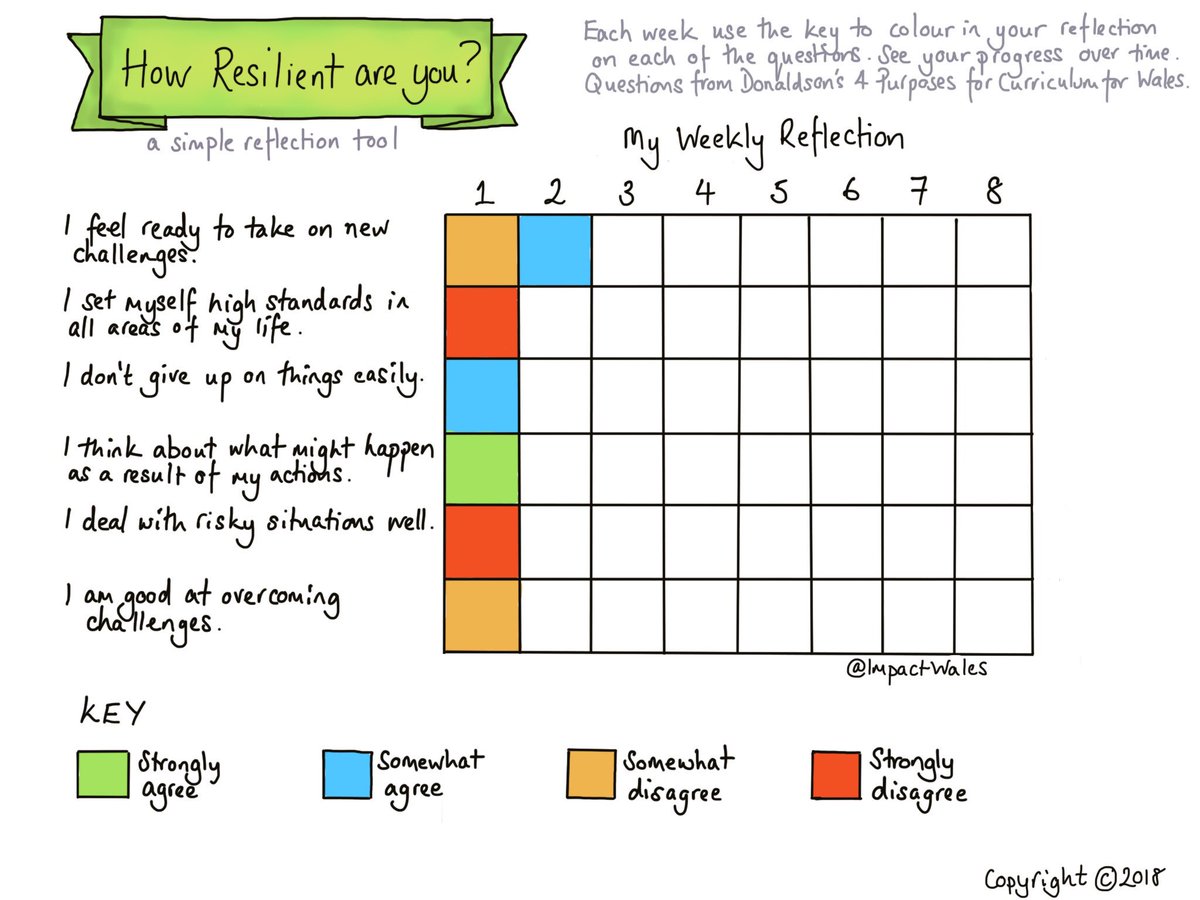 How Resilient are you?
a simple reflection tool
Each week use the key to colour in your reflection
on each of the questions. See your progress over time.
Questions from Donaldson's 4 Purposes for Curriculum for Wales.
My Weekly Reflection
1 2 3 4 5 6 7 8
I feel ready to take on new
challenges.
I set myself high standards in
all areas of my life.
I don't give up on things easily.
I think about what might happen
as a result of my actions.
I deal with risky situations well.
I am good at overcoming
challenges.
@ImpactWales
KEY
Strongly
agree
Somewhat
agree
Somewhat
disagree
Strongly
disagree
Copyright ©2018